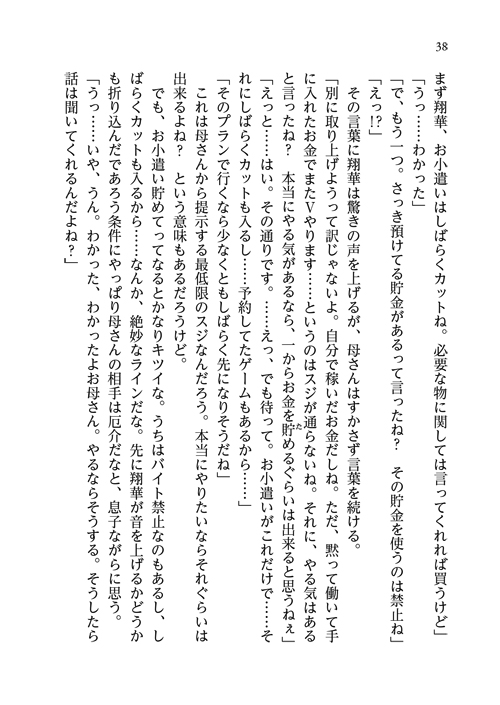 38
まず翔華、お小遣いはしばらくカットね。必要な物に関しては言ってくれれば買うけど」
「うっ……わかった」
「で、もう一つ。さっき預けてる貯金があるって言ったね？　その貯金を使うのは禁止ね」
「えっ!?」
　その言葉に翔華は驚きの声を上げるが、母さんはすかさず言葉を続ける。
「別に取り上げようって訳じゃないよ。自分で稼いだお金だしね。ただ、黙って働いて手
に入れたお金でまたＶやります……というのはスジが通らないね。それに、やる気はある
と言ったね？　本当にやる気があるなら、一からお金を貯めるぐらいは出来ると思うねぇ」
「えっと……はい。その通りです。……えっ、でも待って。お小遣いがこれだけで……そ
れにしばらくカットも入るし……予約してたゲームもあるから……」
「そのプランで行くなら少なくともしばらく先になりそうだね」
　これは母さんから提示する最低限のスジなんだろう。本当にやりたいならそれぐらいは
出来るよね？　という意味もあるだろうけど。
　でも、お小遣い貯めてってなるとかなりキツイな。うちはバイト禁止なのもあるし、し
ばらくカットも入るから……なんか、絶妙なラインだな。先に翔華が音を上げるかどうか
も折り込んだであろう条件にやっぱり母さんの相手は厄介だなと、息子ながらに思う。
「うっ……いや、うん。わかった、わかったよお母さん。やるならそうする。そうしたら
話は聞いてくれるんだよね？」